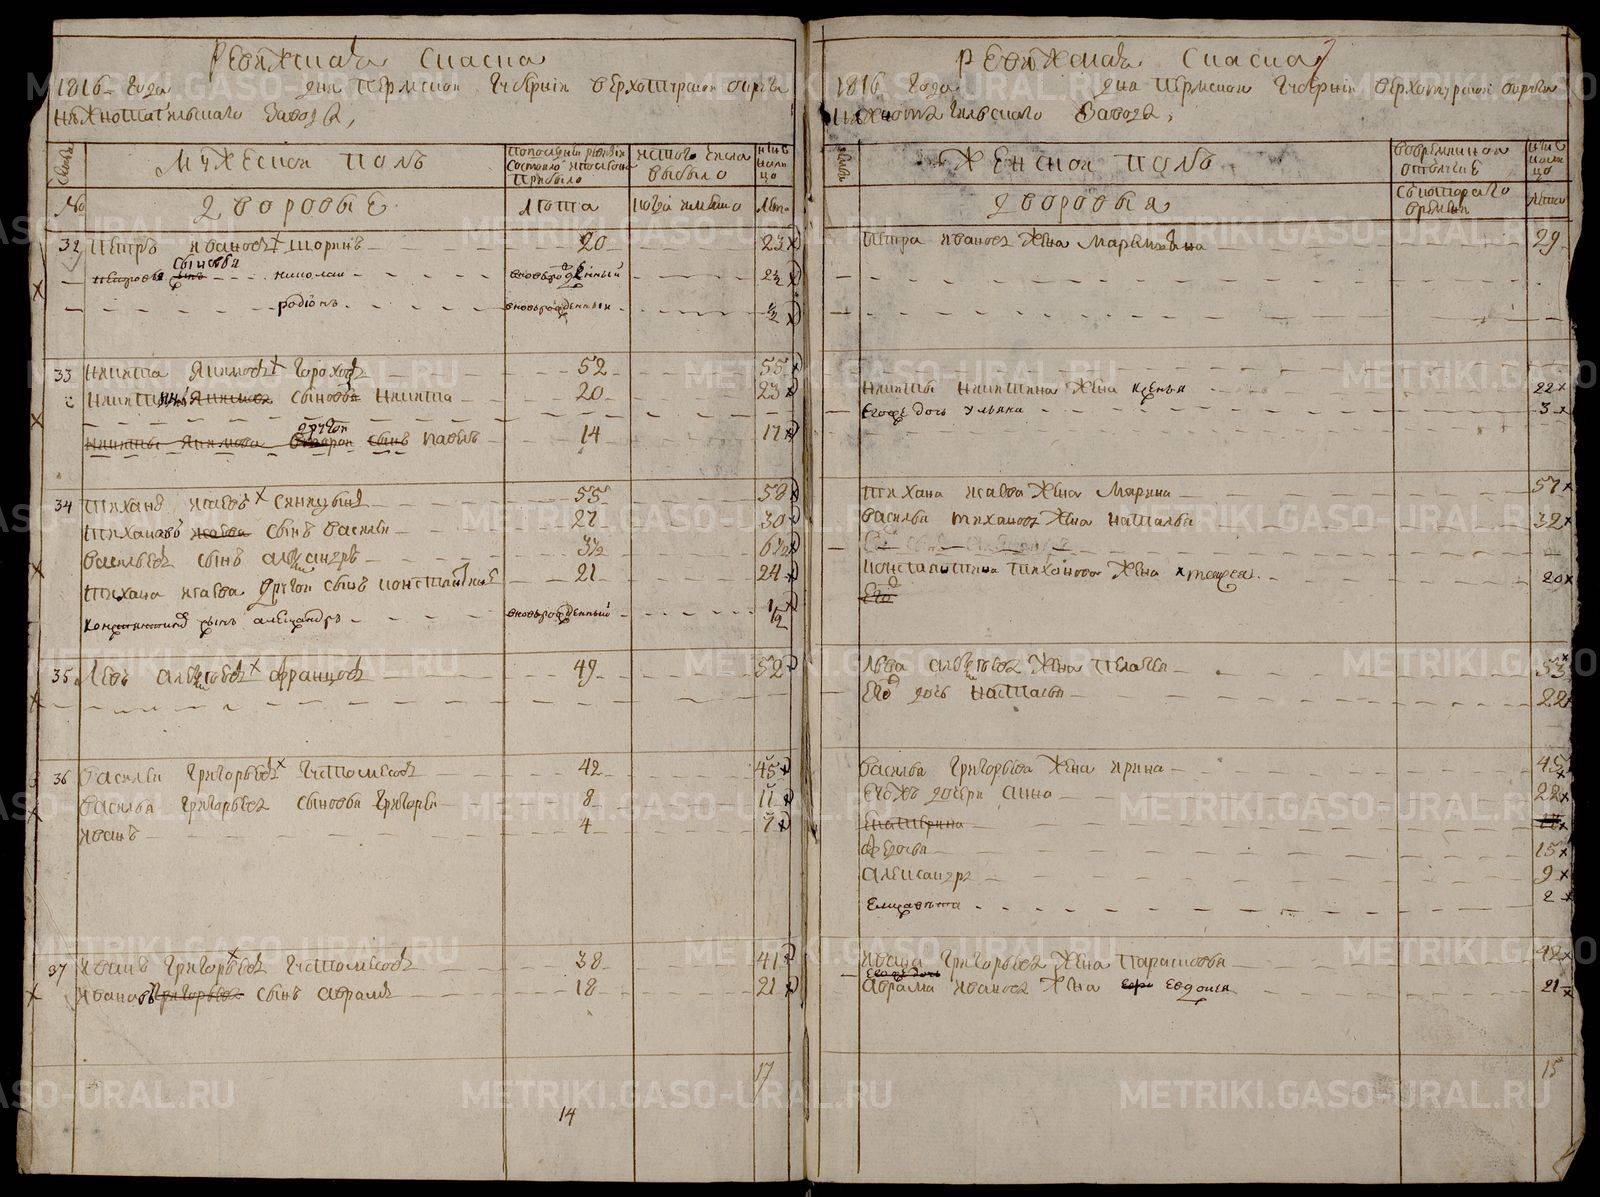 Ревижская Скаска
1816 года дня Пермской Губернии Верхотурской округи
Нижнотагильскаго Завода,
Мужеской полъ
По последней ревизии состояло и после оной прибыло
Ис того числа выбыло
Ныне на лицо
№
Дворовые
лета
когда имянно
лета
32 Петръ Ивановъ Шоринъ 20 23
Петровы сыновья Николаи вновьрожденный 2½
Родионъ вновьрожденный ½
33 Никита Якимовъ Гороховъ 52 55
Никитины Якимова сыновья Никита 20 23
Никиты Якимова второй другой сынъ Павелъ 14 17
34 Тиханъ Исаевъ Синицынъ 55 58
Тихановъ Исаева сынъ Василеи 27 30
Васильевъ сынъ Александръ 3½ 6½
Тихана Исаева другой сынъ Константинъ 21 24
Константинов сынъ Александръ вновьрожденный 1/2
35 Левъ Алексеевъ Францовъ 49 52
36 Василеи Григорьевъ Густомесовъ 42 45
Василья Григорьева сыновья Григореи 8 11
Иванъ 4 7
37 Иванъ Григорьевъ Густомесовъ 38 41
Ивановъ Григорьева сынъ Абрамъ 18 21
17
14
Ревижская Скаска
1816 года дня Пермской Губернии Верхотурской округи
Нижнотагильскаго Завода,
Женской полъ
Во временной отлучке
Ныне на лицо
Дворовыя
С котораго времяни
лета
Петра Иванова жена Марья 29
Никиты Никитина жена Ксенья 22
Егожъ дочь Ульяна 3
Тихана Исаева жена Марина 57
Василья Тиханова жена Наталья 32
Константина Тиханова жена 20
Его
Льва Алексеева жена Пелагея 53
Его дочь Наталья 22
Василья Григорьева жена Ирина 45
Егожъ дочери Анна 22
Катерина
Федосья 15
Александра 9
Елизавета 2
Ивана Григорьева жена Парасковья 42
Егожъ дочь
Абрама Иванова жена Евдокия 21
15
METRIKI.GASO-URAL.RU